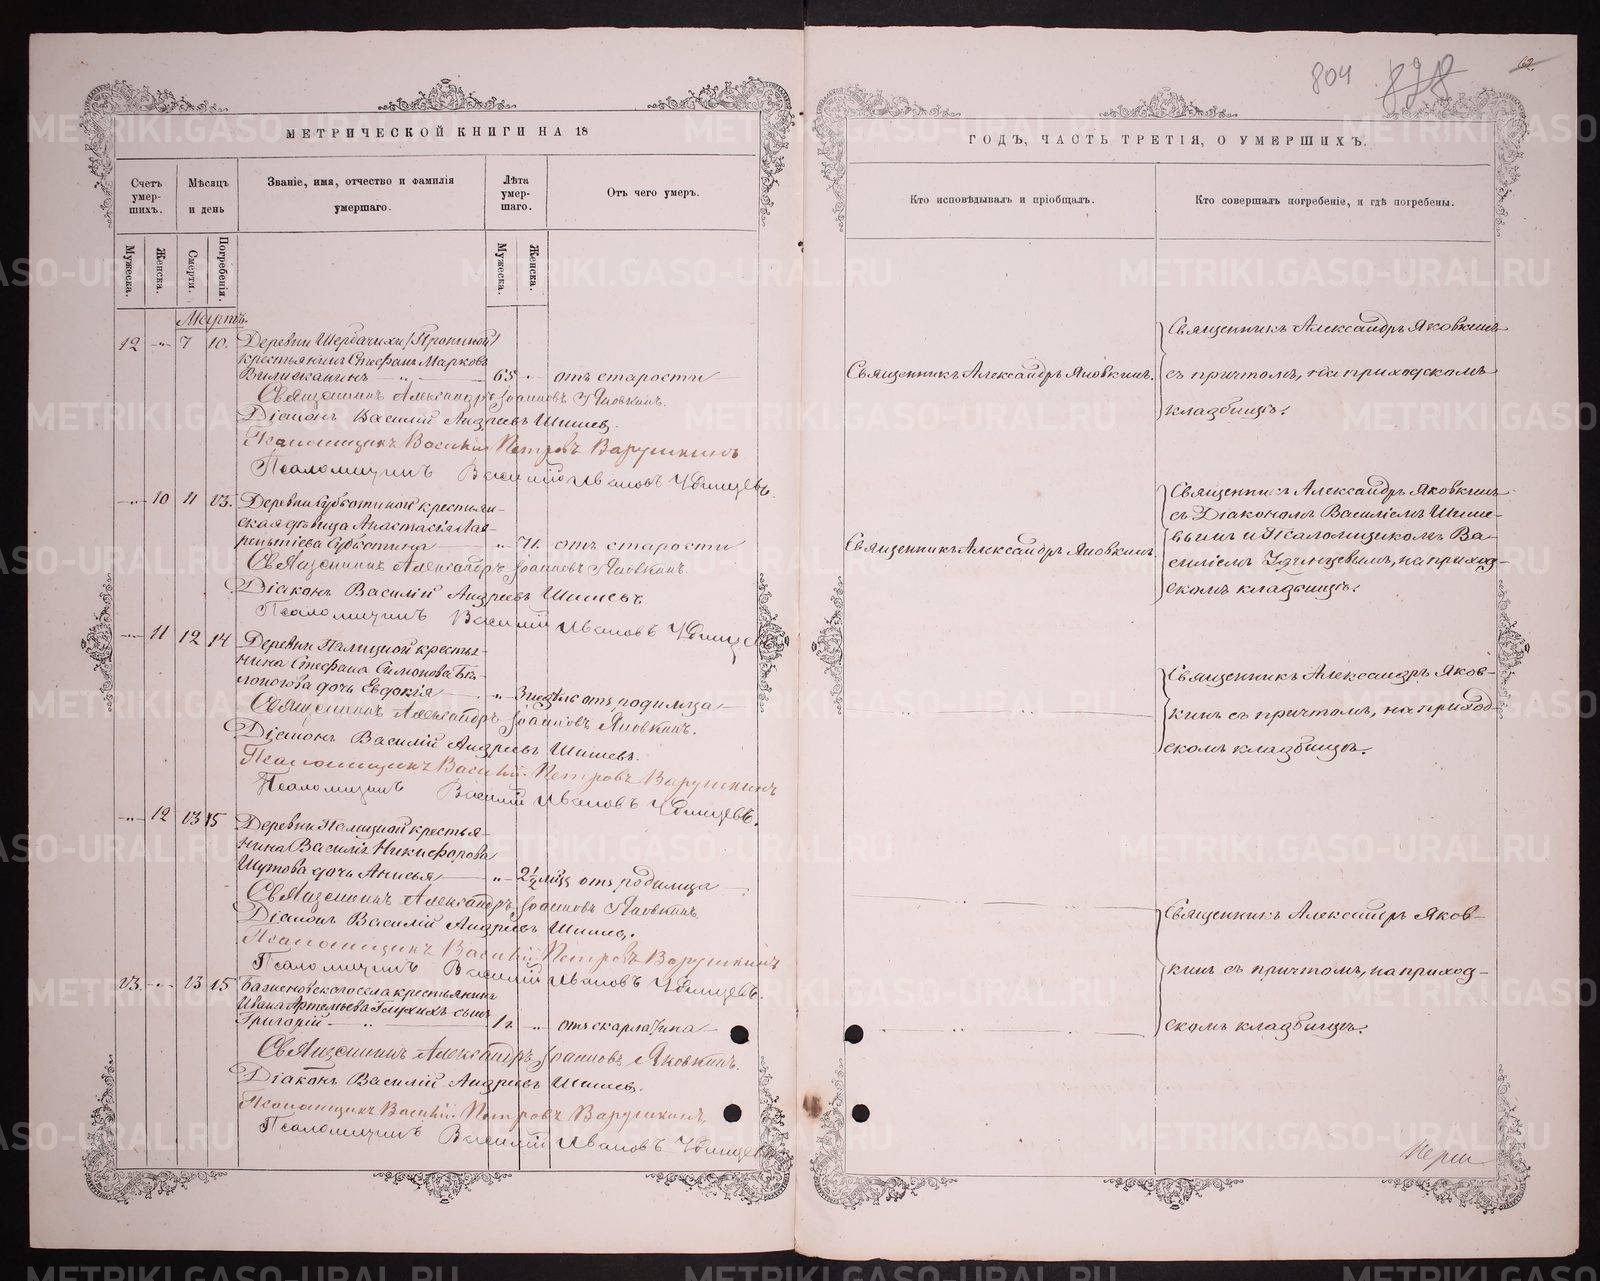 804 878
62.
МЕТРИЧЕСКОЙ КНИГИ НА 18
Счетъ умер-шихъ.
Мѣсяцъ и день
Званіе, имя, отчество и фамилія умершаго.
Лѣта умер-шаго.
Отъ чего умеръ.
Мужеска.
Женска.
Смерти.
Погребенія.
Мужеска.
Женска.
Мартъ.
12 -"- 7 10. Деревни
крестьянинъ Стефанъ Марковъ
65 -"- отъ старости
Священникъ Александръ Іоанновъ Яковкинъ.
Діаконъ Василій Андреевъ Шишев.
Псаломщикъ Василій Петровъ Варушкинъ
Псаломщикъ Василій Ивановъ Удинцевъ.
-"- 10 11 13. Деревни Субботиной крестьян-
ская дѣвица Анастасія Лав-
рентіева Субботина -"- 71. отъ старости
Священникъ Александръ Іоанновъ Яковкинъ.
Діаконъ Василій Андреевъ Шишевъ
Псаломщикъ Василій Ивановъ Удинцевъ
-"- 11 12 14 Деревни крестья-
нина Стефана Симонова Бѣ-
лоногова дочь Евдокія -"- 3 недѣль отъ родимца
Священникъ Александръ Іоанновъ Яковкинъ.
Діаконъ Василій Андреевъ Шишевъ.
Псаломщикъ Василій Петровъ Варушкинъ
Псаломщикъ Василій Ивановъ Удинцевъ.
-"- 12 13 15 Деревни крестья-
нина Василія Никифорова
Шутова дочь Анисья -"- 2½ мѣс отъ родимца
Священникъ Александръ Іоанновъ Яковкинъ
Діаконъ Василій Андреевъ Шишев.
Псаломщикъ Василій Петровъ Варушкинъ
Псаломщикъ Василій Ивановъ Удинцевъ.
13. -"- 13 15 Баженовскаго села крестьянина
Ивана Артемьева Глухихъ сынъ
Григорій -"- 1 г. -"- отъ скарлатина
Священникъ Александръ Іоанновъ Яковкинъ.
Діаконъ Василій Андреевъ Шишев.
Псаломщикъ Василій Петровъ Варушкинъ,
Псаломщикъ Василій Ивановъ Удинцевъ
ГОДЪ, ЧАСТЬ ТРЕТІЯ, О УМЕРШИХЪ.
Кто исповѣдывалъ и пріобщалъ.
Кто совершалъ погребеніе, и гдѣ погребены.
Священникъ Александръ Яковкинъ.
Священникъ Александръ Яковкинъ
съ причтомъ, на приходскомъ
кладбищѣ.
Священникъ Александръ Яковкинъ
Священникъ Александръ Яковкинъ
съ Діакономъ Василіемъ Шише-
вымъ и Псаломщикомъ Ва-
силіемъ Удинцевымъ, на приход-
скомъ кладбищѣ.
Священникъ Александръ Яков-
кинъ съ причтомъ, на приход-
скомъ кладбищѣ.
Священникъ Александръ Яков-
кинъ съ причтомъ, на приход-
скомъ кладбищѣ.
METRIKI.GASO-URAL.RU